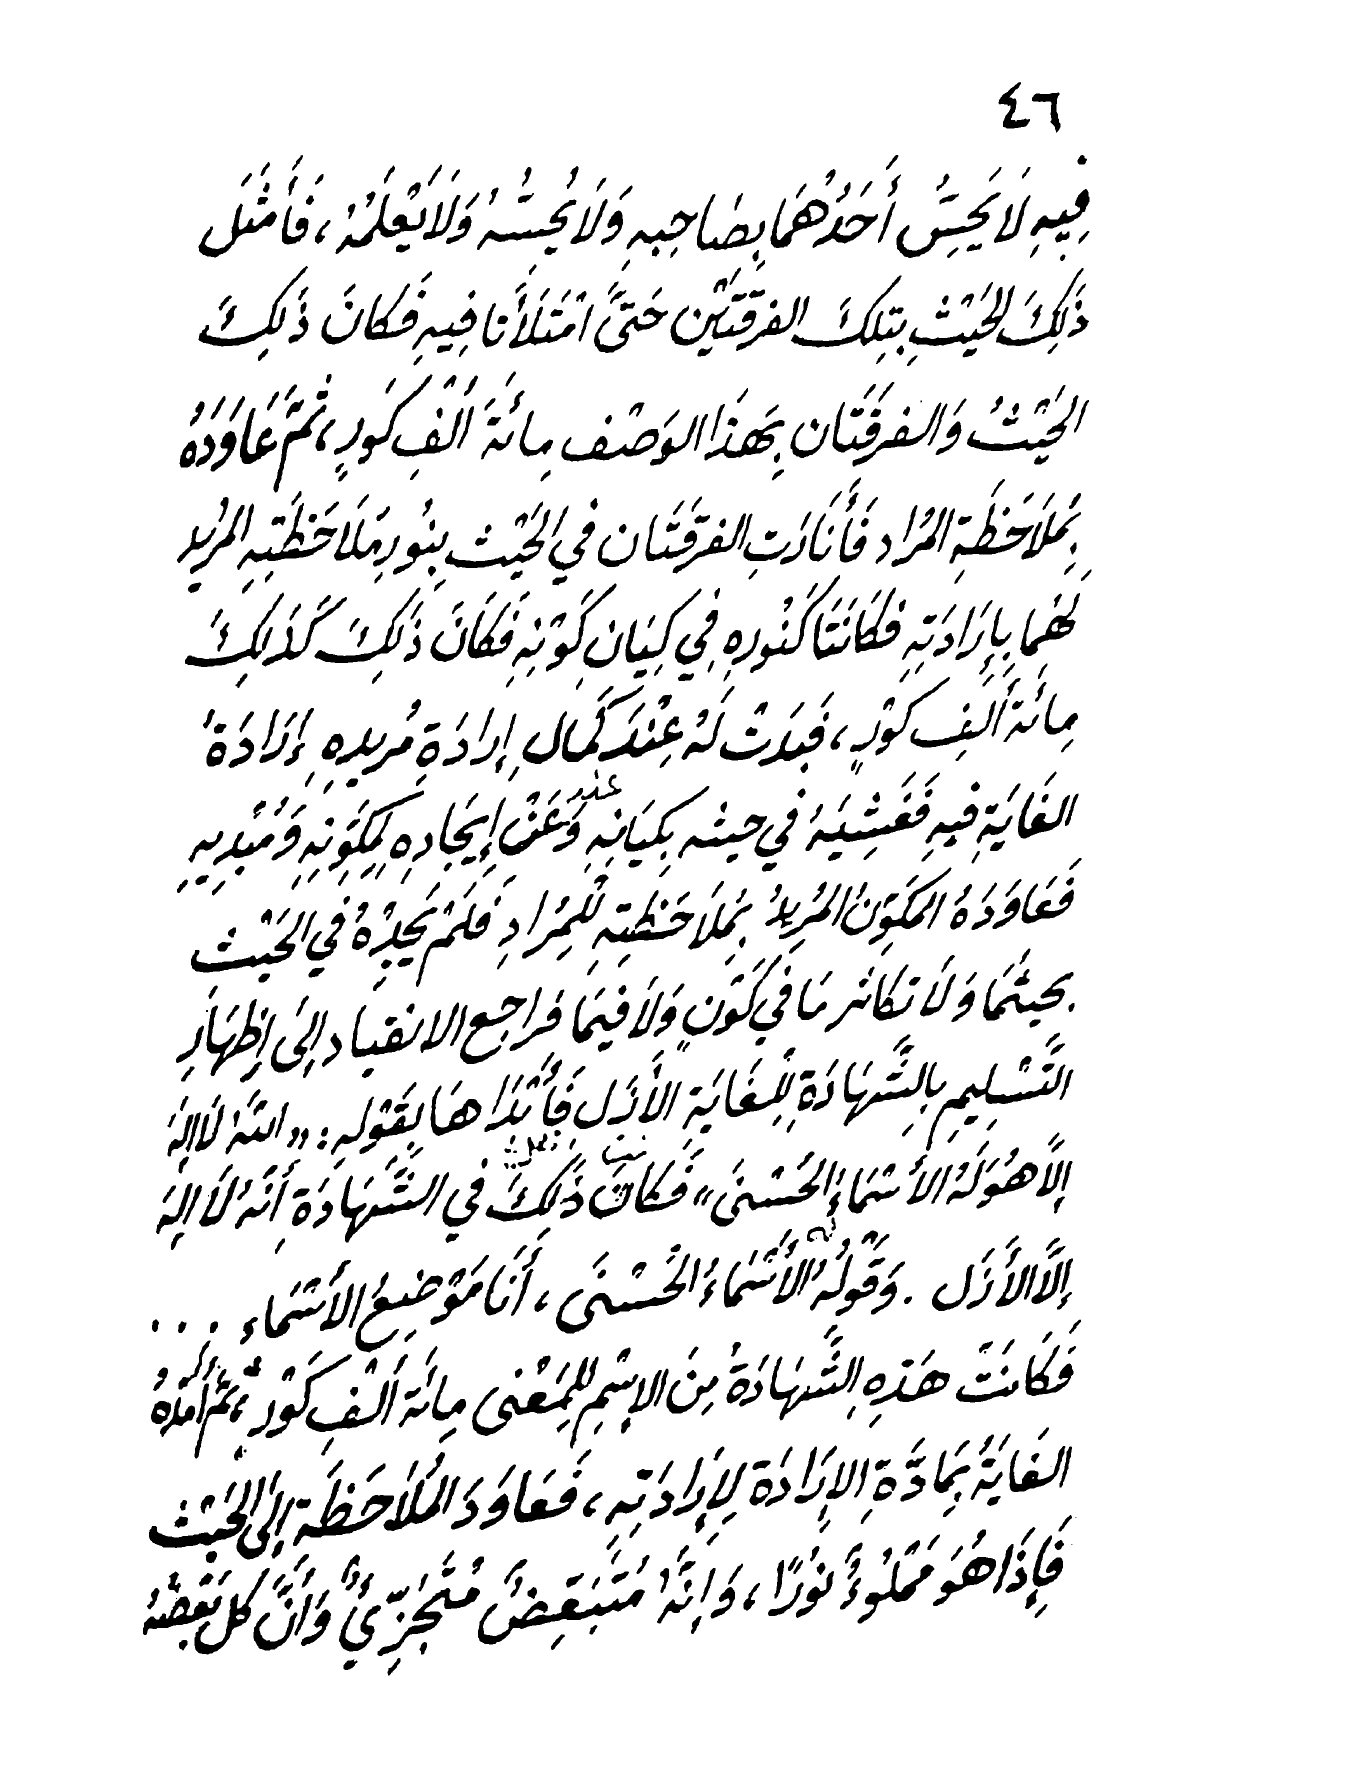 ٤٦
فِيهِ لَا يَحِسُّ أَحَدُهُمَا بِصَاحِبِهِ وَلَا يُحِسُّهُ وَلَا يَعْلَمُهُ ، فَأَمْثَلَ
ذَلِكَ الحَيْثِ بِتِلكَ الفرقَتَيْنِ حَتَّى امْتَلَأَنا فِيهِ فَكانَ ذَلِكَ
الحَيْثُ وَالفرقَتَان بِهَذَا الوَصْف مِائَةَ أَلْفِ كَورٍ ، ثُمَّ عَاوَدَهُ
بِمَلَاحَظَةِ المُرَاد فَأَنَارَتِ الفرقَتَان في الحَيْث بِنُورِ مَلَاحَظَتِهِ المرُيد
لَهُمَا بِإِرَادَتِهِ فكَانَتَا كَنُورهِ فِي كِيَانِ كَوْنِهِ فَكَانَ ذَلِكَ كَذَلِكَ
مِائَة أَلفِ كَوْرٍ ، فَبَدَتْ لَهُ عِنْدَ كَمَالِ إِرادَةِ مُريدِهِ إِرَادَةُ
الغَايَةِ فيهِ فَغَشِيَهُ في حيثه بِكيَانِهِ وَعَنْ إِيجَادِهِ لِمكَوِّنِهِ وَمُبْدِيهِ
فَعَاوَدَهُ المكَوِّنُ المُرِيدُ بِمُلَاحَظتِهِ لِلْمُرَادِ فَلَمْ يَجِدْهُ في الحَيْث
بحيثُمَا وَلَا تكاثر مَا في كَوْنٍ وَلَا فيمَا فَراجع الانقياد إلَى إظهَارِ
التَّسْلِيمِ بِالشَّهَادَةِ لِلْغَايَةِ الأَزَل فَأَبْدَاهَا بِقَوْلِهِ : «اللهُ لَا إلهَ
إلَّا هُوَ لَهُ الأَسْمَاءُ الحُسْنَى» فَكَانَ ذَلِكَ في الشَّهَادَةِ أَنَّهُ لَا إلهَ
إلَّا الأَزَل . وَقَولُهُ الأَسْمَاءُ الحُسْنَى ، أَنَا مَوْضِعُ الأَسْمَاءِ . . .
فَكَانَتْ هَذِهِ الشَّهَادَةُ مِنَ الإسْمِ للمَعْنى مِائَة أَلْفِ كَوْرٍ ، ثُمَّ أَمَدَّهُ
الغايَةُ بِمَادَّةِ الإرَادَة لِإرَادَتِهِ ، فَعَاوَدَ المُلَاحَظَة إلَى الحَيْث
فَإِذَا هُوَ مَمْلُوءٌ نُورًا ، وَإنَّهُ مُتَبَعِّضٌ مُتَجَزِّئٌ وَأَنَّ كُلَّ بَعْضُهُ